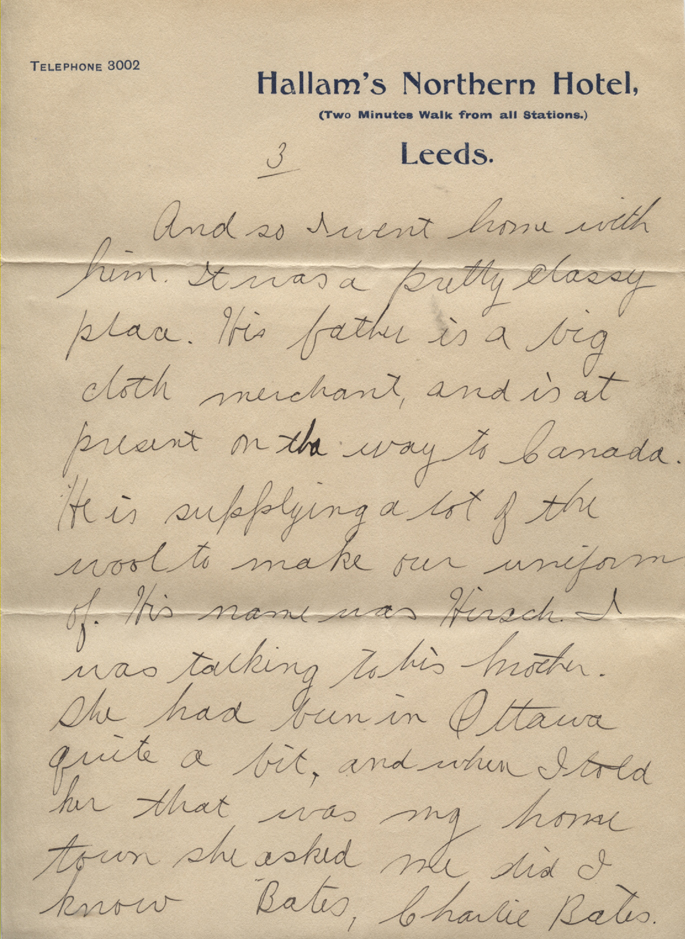 TELEPHONE 3002
Hallam's Northern Hotel,
(Two Minutes Walk from all Stations.)
Leeds.
3
And so I went home with
him. It was a pretty classy
place. His father is a big
cloth merchant, and is at
present on the way to Canada.
He is supplying a lot of the
wool to make our uniform
of. His name was Hirsch. I
was talking to his mother.
She had been in Ottawa
quite a bit, and when I told
her that was my home
town she asked me did I
know Bates, Charlie Bates.